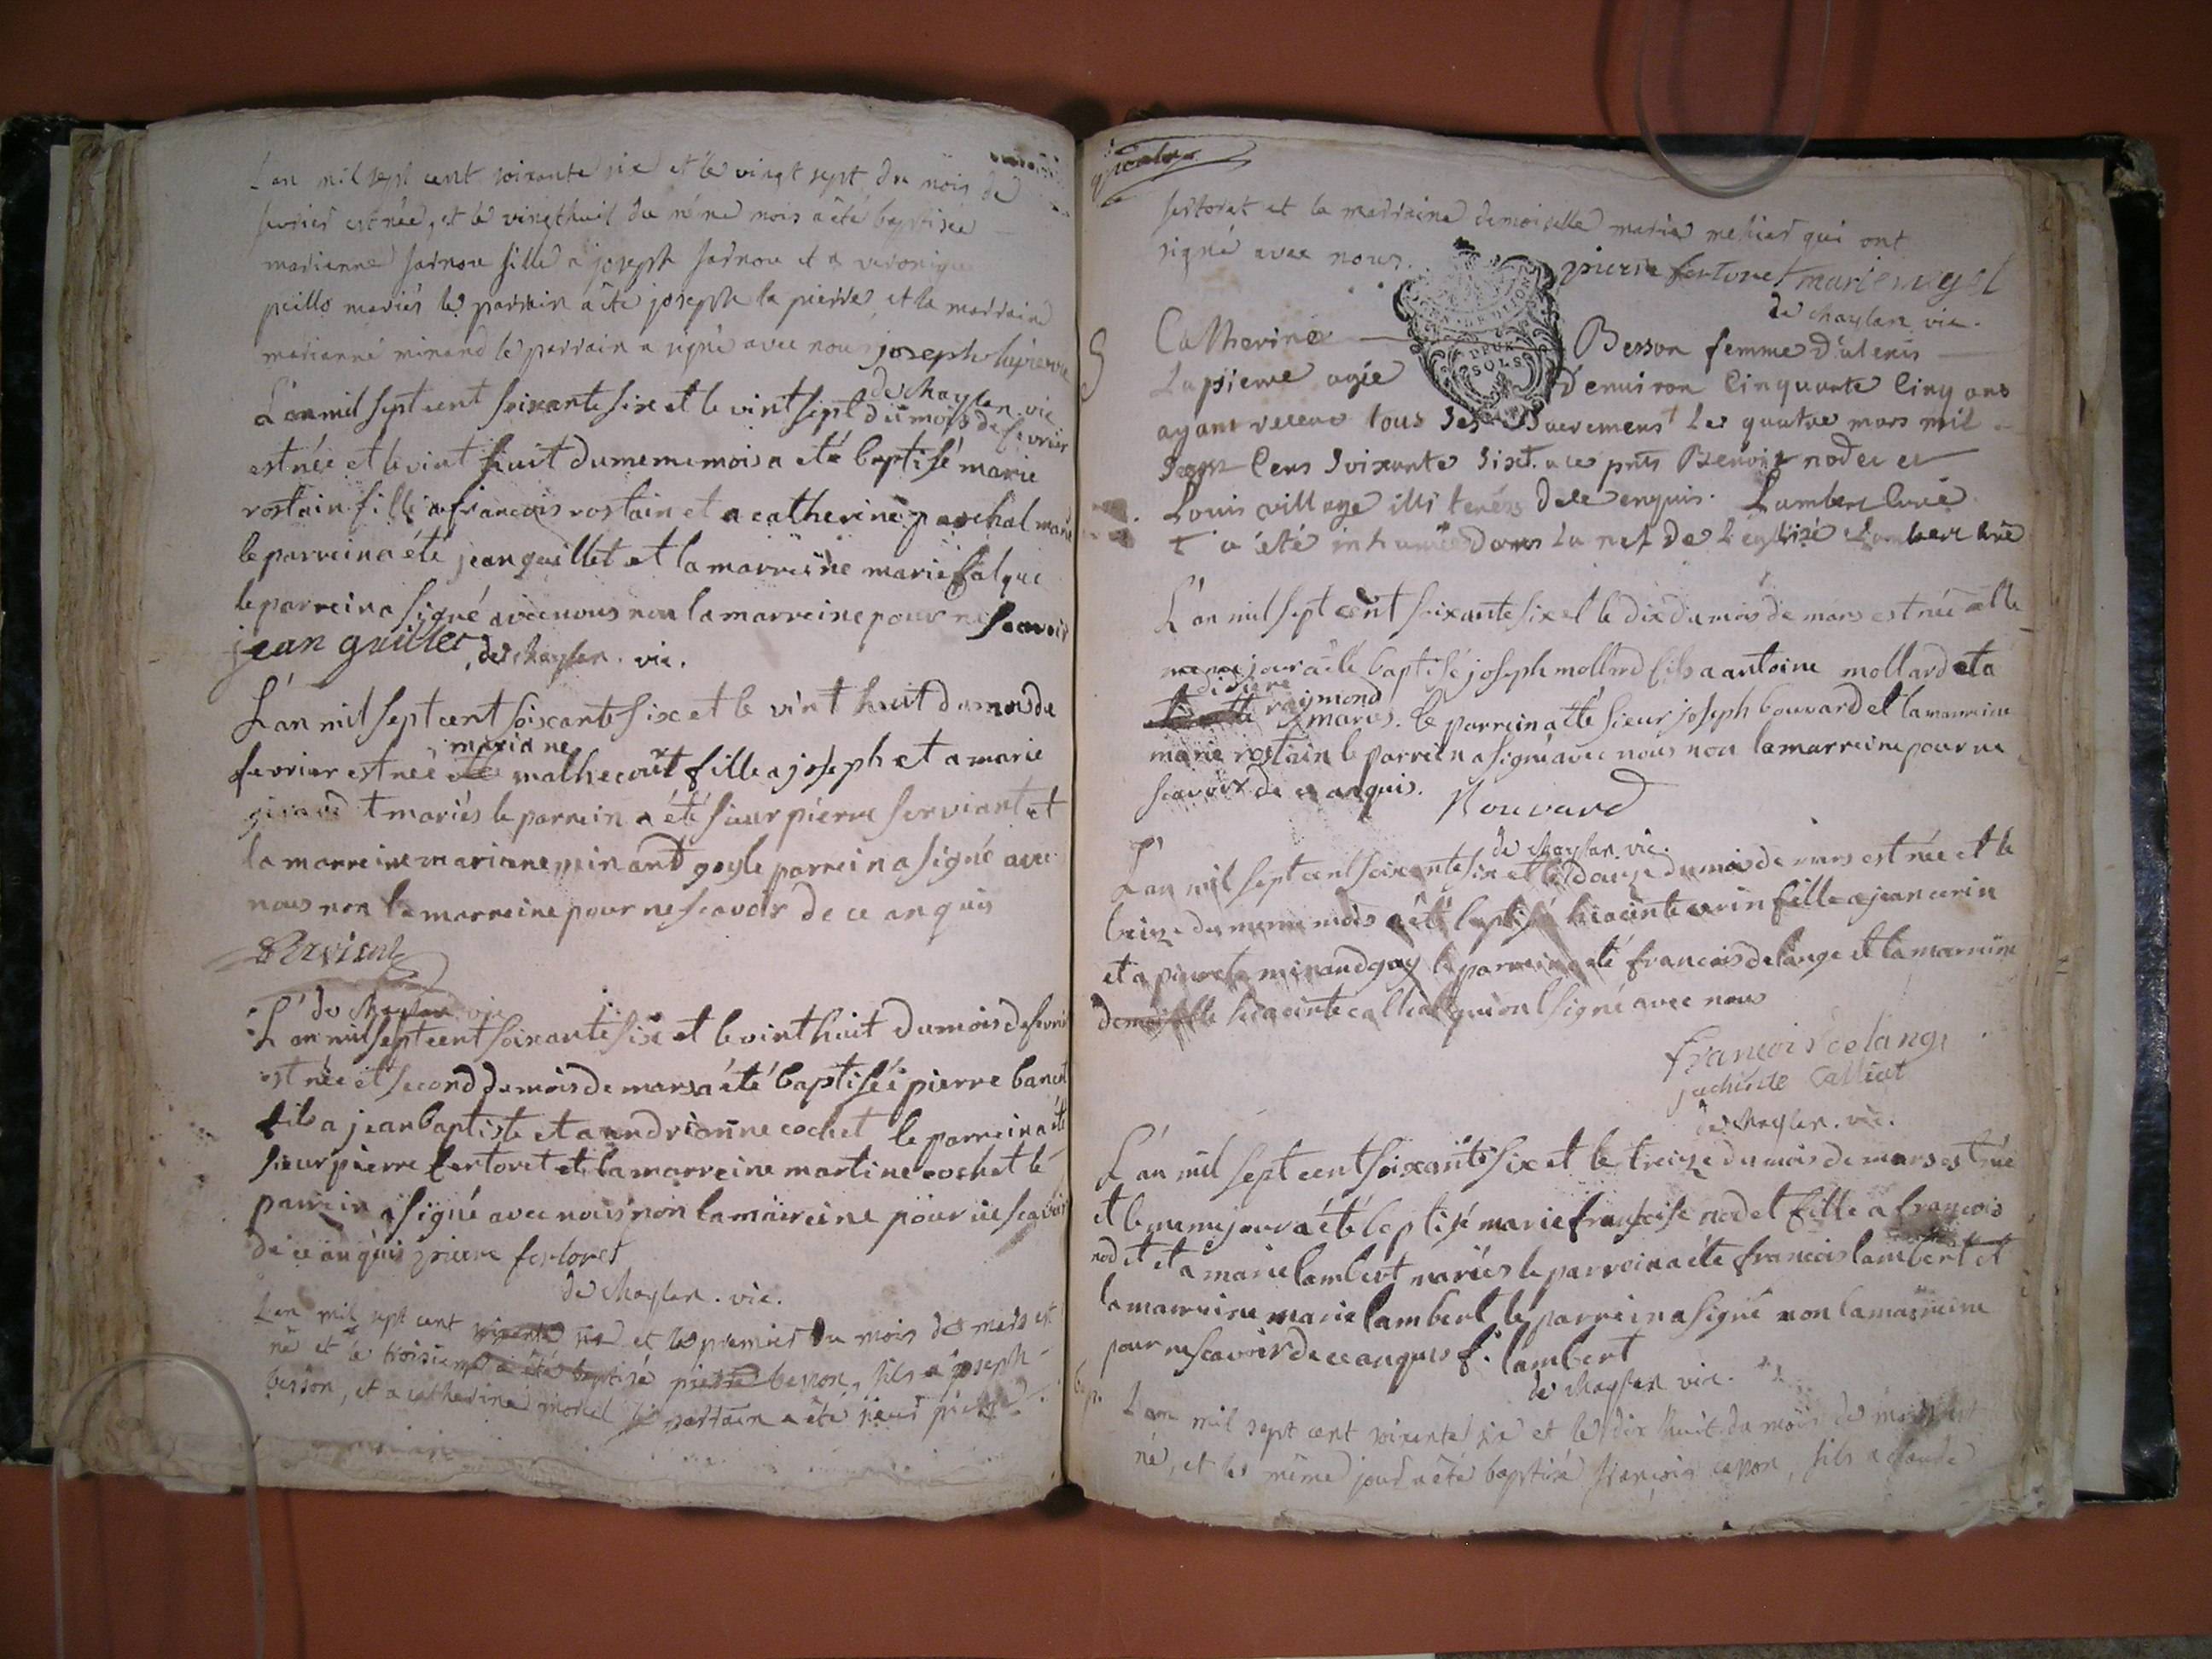 L'an mil sept cent soixante six et le vingt sept du mois de
fevrier est née, et le vingthuit du même mois a été baptisée
marianne farnou fille a joseph farnou et a veronique
peillo mariés le parrain a été joseph la pierre, et la marraine
marianne minand le parrain a signé avec nous joseph lapierre
de chaylan vic
L'an mil sept cent soixante six et le vint sept du mois de fevrier
est née et le vint huit du meme mois a été baptisé marie
rostain fille a francois rostain et a catherine paschal mariés
le parrein a été jean guillet et la marreine marie falque
le parrein a signé avec nous non la marreine pour ne scavoir
jean guillet de chaylan . vic.
L'an mil sept cent soixante six et le vint huit du mois de
fevrier est née mariane malhecourt fille a joseph et a marie
girard mariés le parrein a été sieur pierre serviant et
la marreine marianne minand goy le parrein a signé avec
nous non la marreine pour ne scavoir de ce anquis
de chaylan vic
L'an mil sept cent soixante six et le vint huit du mois de fevrier
est née et second du mois de mars a été baptisé pierre bancet
fils a jean baptiste et a andrianne cochet le parrein a été
sieur pierre fertoret et la marreine martine cochet le
parrein a signé avec nous non la marreine pour ne scavoir
de ce anquis pierre fertoret
de chaylan . vic.
L'an mil sept cent soixante six et le premier du mois de mars est
né et le troisieme a été baptisé pierre besson, fils a joseph
besson, et a catherine morel le parrain a été sieur pierre
fertoret et la marraine demoiselle marie mehier qui ont
signé avec nous. pierre fertoret
de chaylan vic.
S Catherine Besson femme d'
Lapierre agée d'environ Cinquante Cinq ans
ayant receue tous Ses Sacremens Le quatre mars mil
Sept Cens Soixante Six a ce pnts Benoit nodet et
Louis village illiterés de ce enquis. Lambert Curé
a été inhumée dans La nef de L'eglise Lambert curé
L'an mil sept cent soixante six et le dix du mois de mars est née et le
meme jour a été baptisé joseph mollard fils a antoine mollard et a
didiere raymond mariés. le parrein a été sieur joseph bouvard et la marreine
marie rostain le parrein a signé avec nous non la marreine pour ne
scavoir de ce anquis. Bouvard
de chaylan. vic.
L'an mil sept cent soixante six et le douze du mois de mars est née et le
treize du meme mois a été baptisé hiacinte fille a jean
et a minand goy le parrein a été francois delange et la marreine
demoiselle hiacinte calliat qui ont signé avec nous
françois delange
jachinte Calliat
de chaylan. vic.
L'an mil sept cent soixante six et le treize du mois de mars est née
et le meme jour a été baptisé marie francoise nodet fille a francois
nodet et a marie lambert mariés le parrein a été francois lambert et
la marreine marie lambert le parrein a signé non la marreine
pour ne scavoir de ce anquis f. lambert
de chaylan vic.
bap. L'an mil sept cent soixante six et le dix huit du mois de mars est
né, et le même jour a été baptisé françois, fils a claude